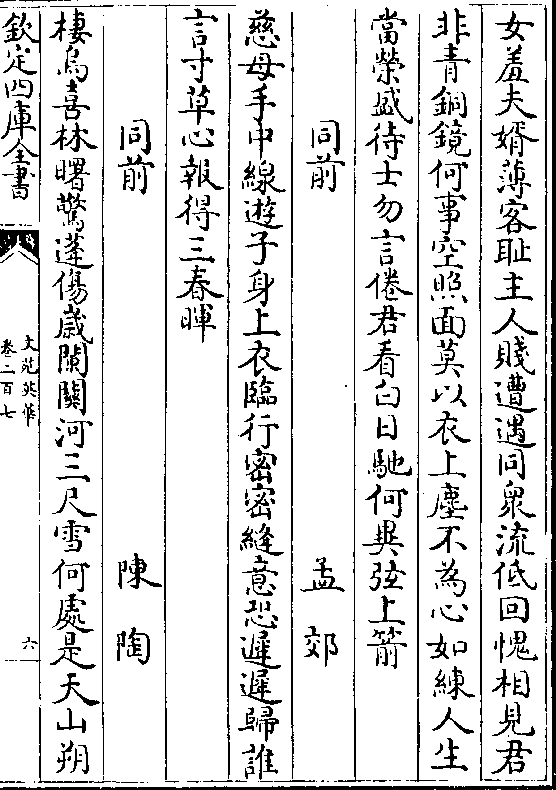 女羞夫婿薄客耻主人賤遭遇同衆流低回愧相見君
非青銅鏡何事空照面莫以衣上塵不為心如練人生
當榮盛待士勿言倦君看白日馳何異弦上箭
同前 孟郊
慈母手中線遊子身上衣臨行密密縫意恐遲遲歸誰
言寸草心報得三春暉
同前 陳陶
棲烏喜林曙驚蓬傷歲闌關河三尺雪何處是天山朔
欽定四庫全書
文苑英華
卷二百七
六